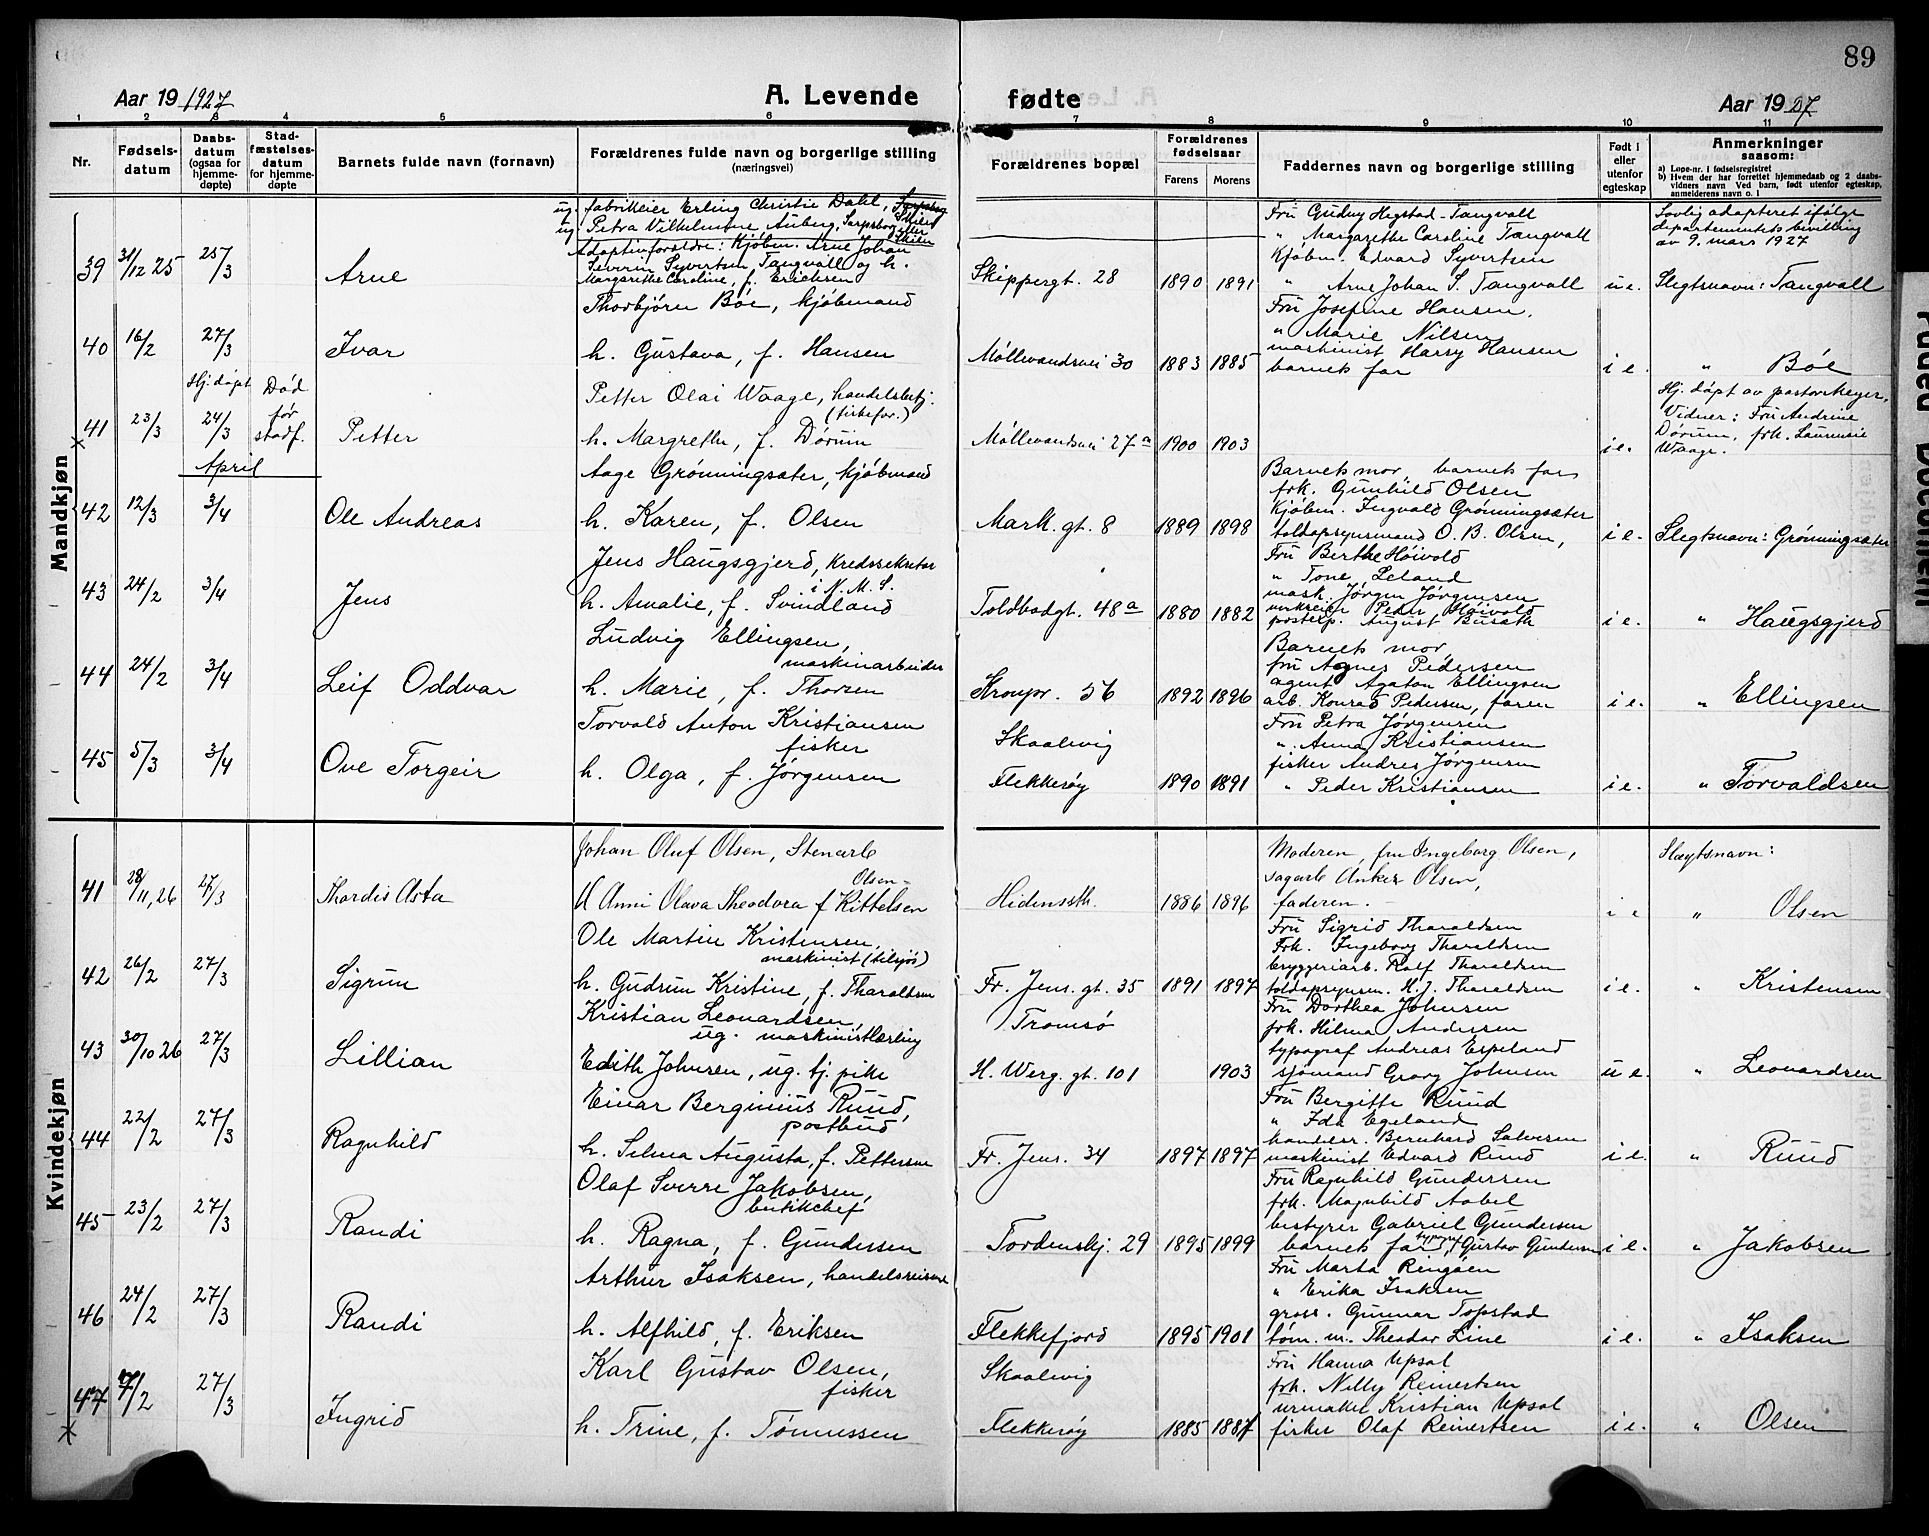 89
Aar 19 1927
A. Levende fødte
Aar 19 27
1 2 3 4 5 6 7 8 9 10 11
Nr.
Fødsels-
datum
Daabs-
datum
(ogsaa for
hjemme-
døpte)
Stad-
fæstelses-
datum
for hjemme-
døpte
Barnets fulde navn (fornavn)
Forældrenes fulde navn og borgerlige stilling
(næringsvei)
Forældrenes bopæl
Forældrenes
fødselsaar
Farens Morens
Faddernes navn og borgerlige stilling
Født i
eller
utenfor
egteskap
Anmerkninger
saasom:
a) Løpe-nr. i fødselsregistret
b) Hvem der har forrettet hjemmedaab og 2 daabs-
vidners navn Ved barn, født utenfor egteskap,
anmelderens navn o. l
Mandkjøn
39 31/12 25 25/3 Arne
ug. fabrikeier Erling Christie Dahl, Sarpsborg
ug Petra Vilhelmine Auberg, Sarpsborg
Skien
Adoptivforældre: Kjøbm. Arne Johan
Severin Syvertsen Tangvall og h.
Margarethe Caroline, f. Erichsen
Skippergt. 28 1890 1891
Fru Gudny Hegstad-Tangvall
" Margarethe Caroline Tangvall
Kjøbm. Edvard Syvertsen
" Arne Johan S. Tangvall
u e.
Lovlig adopteret ifølge
departementets bevilling
av 9. mars 1927
Slegtsnavn: Tangvall
40 16/2 27/3 Ivar
Thorbjørn Bóe, kjøbmand
h. Gustava, f. Hansen
Møllevandsvei 30 1883 1885
Fru Josefine Hansen,
" Marie Nilsen
maskinist Harry Hansen
barnets far
i e. " Bóe
41 23/3 Hj. døpt 24/3 Død
før
stadf.
Petter
Petter Olai Waage, handelsbetj.
h. Margrethe, f. Dørum
Møllevandsvei 27 a 1900 1903
i e.
Hj. døpt av pastor Meyer,
Vidner: Fru Andrine
Dørum, frk. Laurensie
Waage.
April
42 12/3 3/4 Ole Andreas
Aage Grønningsæter, kjøbmand
h. Karen, f. Olsen
Mark. gt. 8 1889 1898
Barnets mor, barnets far
frk. Gunhild Olsen
kjøbm. Ingvald Grønningsæter
toldopsynsmand O. B. Olsen,
i e. Slegtsnavn: Grønningsæter
43 24/2 3/4 Jens
Jens Haugsgjerd, Kredssekretær
i N. M. S.
h. Amalie, f. Svindland
Toldbodgt. 48 a 1880 1882
Fru Berthe Høivold
" Tone Leland
mask. Jørgen Jørgensen
verkseier Peder Høivold
postexp. August Busath
i e. " Haugsgjerd
44 24/2 3/4 Leif Oddvar
Ludvig Ellingsen,
maskinarbeider
h. Marie, f. Thorsen
Kronpr. 56 1892 1896
Barnets mor
fru Agnes Pedersen
agent Agaton Ellingsen
arb. Konrad Pedersen, faren
i e. " Ellingsen
45 5/3 3/4 Ove Torgeir
Torvald Anton Kristiansen
fisker
h. Olga, f. Jørgensen
Skaalevig
Flekkerøy 1890 1891
Fru Petra Jørgensen
" Anna Kristiansen
fisker Andres Jørgensen
" Peder Kristiansen
i e. " Torvaldsen
Kvindekjøn
41 28/11, 26 27/3 Thordis Asta
Johan Oluf Olsen, Stenarb
Olsen-
H Anni Olava Theodora f Kittelsen
1886 1896
Moderen, fru Ingeborg Olsen,
sagarb Anker Olsen,
faderen.
i e
Slægtsnavn:
" Olsen
42 26/2 27/3 Sigrun
Ole Martin Kristensen,
maskinist (tilsjøs)
h. Gudrun Kristine, f. Tharaldsen
Fr. Jens. gt. 35 1891 1897
Fru Sigrid Tharaldsen
Frk. Ingeborg Tharaldsen
bryggeriarb. Rolf Tharaldsen
toldopsynsm. H. J. Tharaldsen
i e. " Kristensen
43 30/10 26 27/3 Lillian
Kristian Leonardsen,
ug. maskinistlærling
Edith Johnsen, ug. tj. pike
Tromsø
H. Werg. gt. 101 1903
Fru Dorthea Johnsen
frk. Hilma Andersen
typograf Andreas Espeland
sjømand Georg Johnsen
u e. " Leonardsen
44 22/2 27/3 Ragnhild
Einar Berginius Ruud,
postbud
h. Selma Augusta, f. Pettersen
Fr. Jens. 34 1897 1897
Fru Bergitte Ruud
" Ida Egeland
handelsr. Bernhard Salvesen
maskinist Edvard Ruud
i e. " Ruud
45 23/2 27/3 Randi
Olaf Sverre Jakobsen,
butikchef
h. Ragna, f. Gundersen
Tordenskj. 29 1895 1899
Fru Ragnhild Gundersen
frk. Magnhild Aabel
bestyrer Gabriel Gundersen
barnets far, typogr. Gustav Gundersen
i e. " Jakobsen
46 24/2 27/3 Randi
Arthur Isaksen, handelsreisende
h. Alfhild, f. Eriksen
Flekkefjord 1895 1901
Fru Marta Ringøen
" Erika Isaksen
gross. Gunnar Topstad
tøm. m. Theodor Line
i e. " Isaksen
47 7/2 27/3 Ingrid
Karl Gustav Olsen,
fisker
h. Trine, f. Tønnessen
Skaalevig
Flekkerøy 1885 1887
Fru Hanna Upsal
frk. Nelly Reinertsen
urmaker Kristian Upsal
fisker Olaf Reinertsen
i e. " Olsen